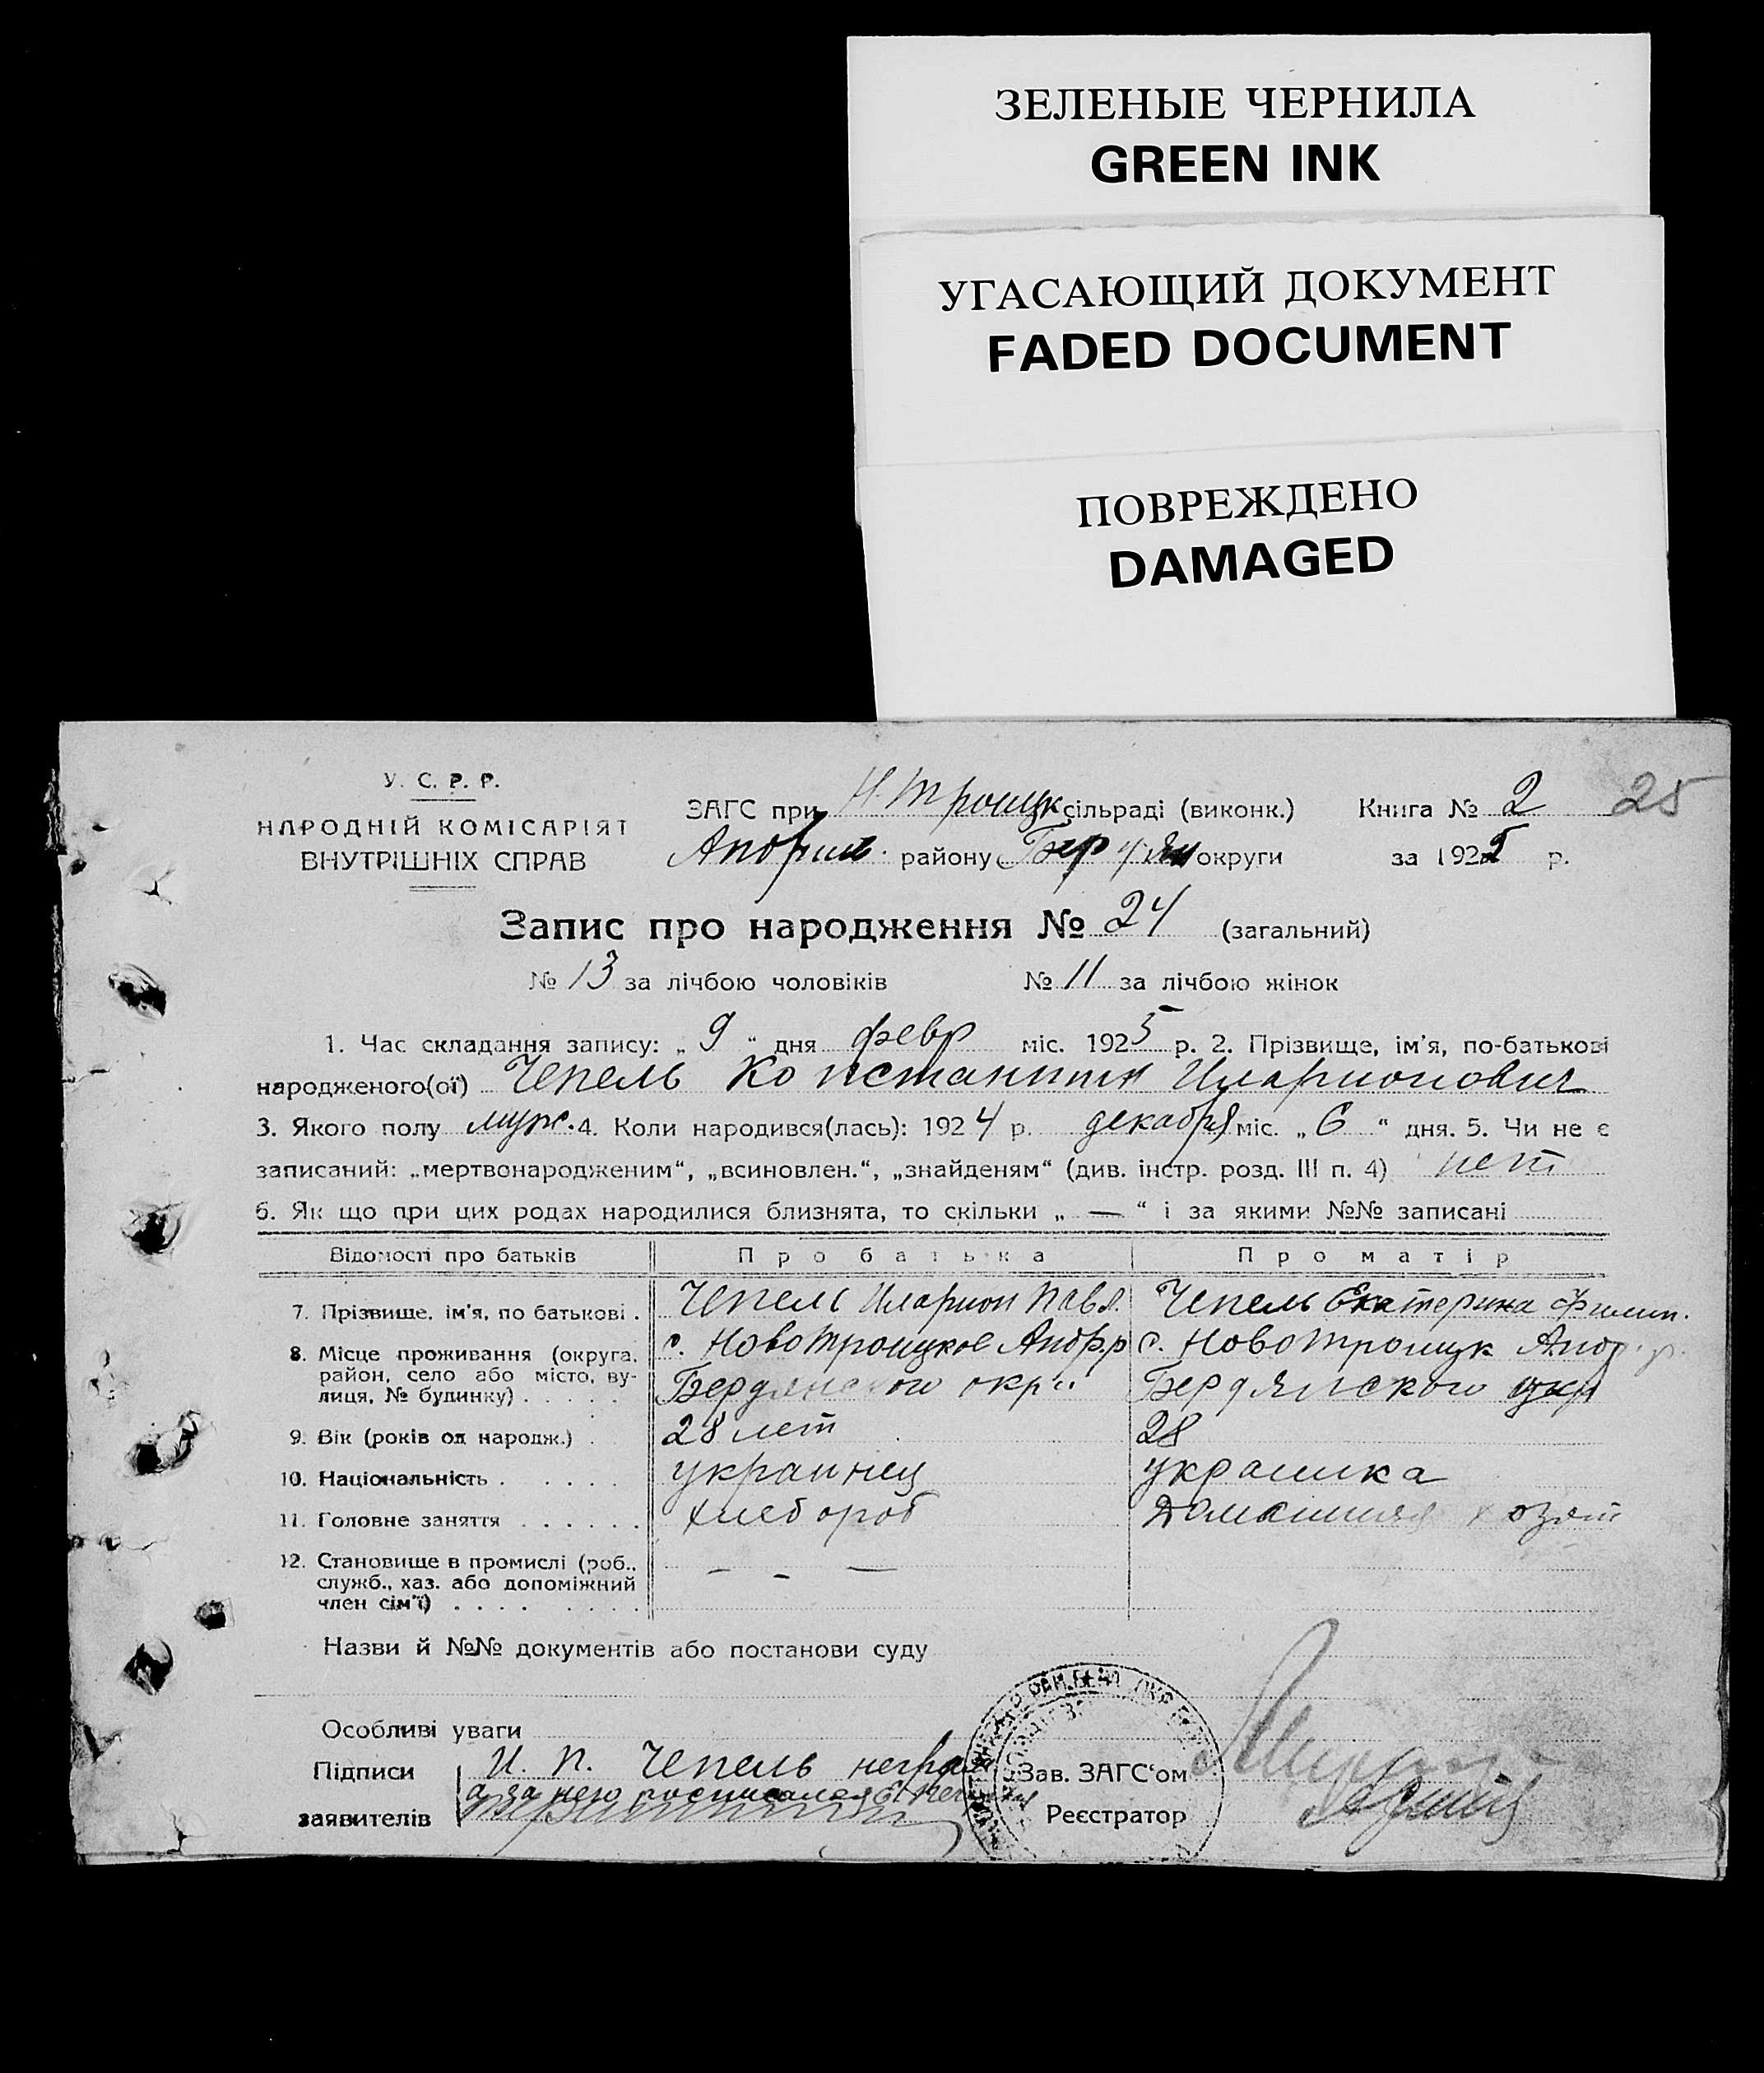 ЗЕЛЕНЫЕ ЧЕРНИЛА
GREEN INK
УГАСАЮЩИЙ ДОКУМЕНТ
FADED DOCUMENT
ПОВРЕЖДЕНО
DAMAGED
У. С. Р. Р.
НАРОДНІЙ КОМІСАРІЯТ
ВНУТРІШНІХ СПРАВ
ЗАГС при Н.Троицк сільраді (виконк.) Книга № 2 25
району округи за 1925 р.
Запис про народження № 24 (загальний)
№ 13 за лічбою чоловіків № 11 за лічбою жінок
1. Час складання запису: „ 9 “ дня февр міс. 1925 р. 2. Прізвище, ім’я, по-батькові
народженого(ої) Чепель Константин Иларионович
3. Якого полу муж. 4. Коли народився(лась): 1924 р. декабря міс. „ 6 “ дня. 5. Чи не є
записаний: „мертвонародженим“, „всиновлен.“, „знайденям“ (див. інстр. розд. III п. 4) нет
6. Як що при цих родах народилися близнята, то скільки „ — “ і за якими №№ записані
Відомості про батьків Про батька Про матір
7. Прізвище, ім’я, по батькові . Чепель Иларион Павл. Чепель Екатерина Филип.
8. Місце проживання (округа, с. Новотроицкое Андр.р с. Новотроицк Андр. р.
район, село або місто, ву-
лиця, № будинку) . . . . . Бердянского окр. Бердянского окр
9. Вік (років од народж.) . 28 лет 28
10. Національність . . . . . украинец украинка
11. Головне заняття . . . . . . хлебороб Домашняя хозяй
12. Становище в промислі (роб., – – —
служб., хаз. або допоміжний
член сім’ї) . . . . . . . .
Назви й №№ документів або постанови суду
Особливі уваги
Підписи И. П. Чепель неграм Зав. ЗАГС‘ом
заявителів а за нею росписался Реєстратор